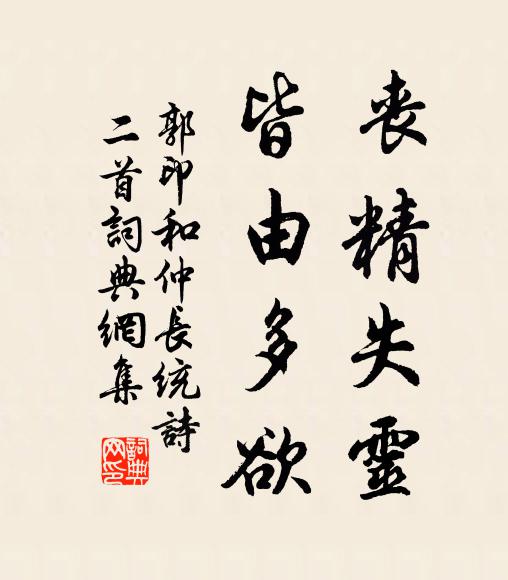 喪精失靈
皆由多欲
郭印和仲長統詩
二首詞典網集
詞典網印